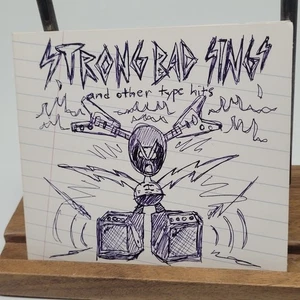 STRONG BAD SINGS
and other type hits